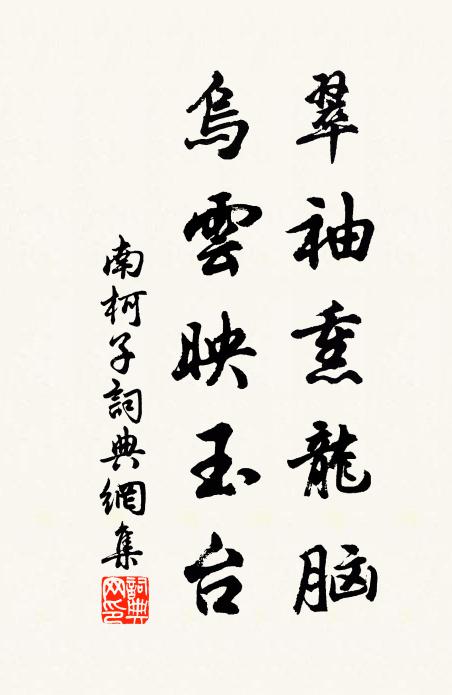 翠袖熏龍脑
烏雲映玉台
南柯子詞典網集
詞典网印